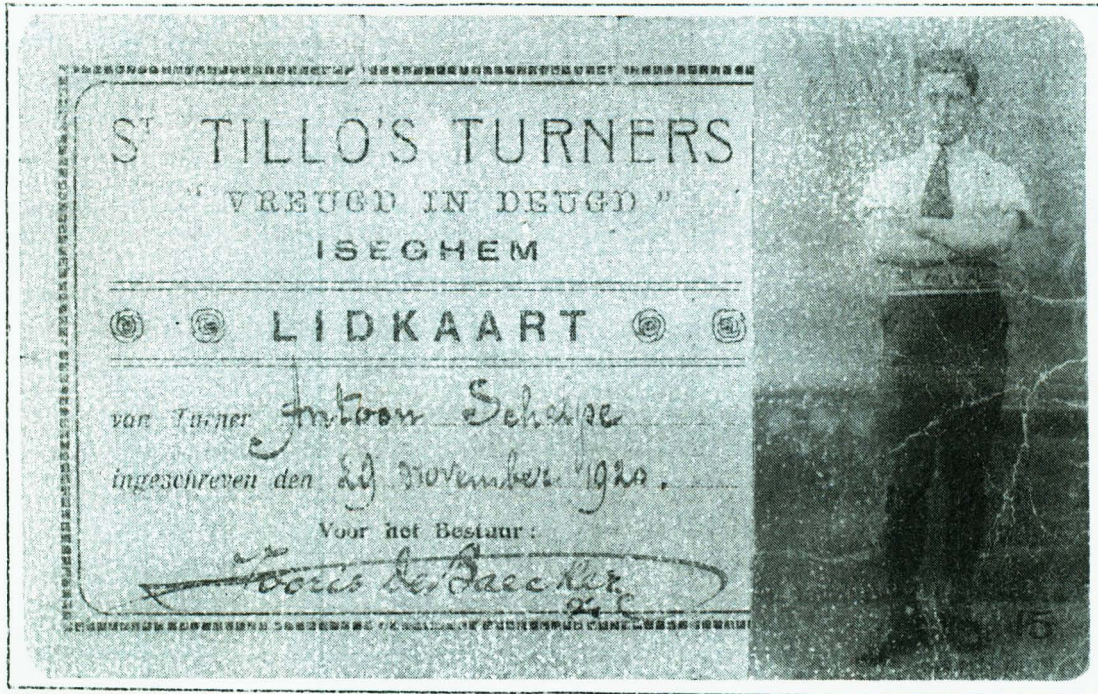 ST TILLO'S TURNERS
"VREUGD IN DEUGD"
ISEGHEM
LIDKAART
van Turner Antoon Scheipe
ingeschreven den 29 november 1920.
Voor het Bestuur :
Jooris De Baecker
15